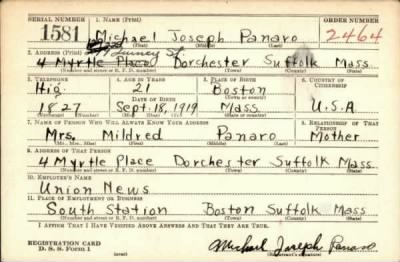 SERIAL NUMBER 1. NAME (Print) ORDER NUMBER
1581 Michael Joseph Panaro 2464
(First) (Middle) (Last)
2. ADDRESS (Print) Quincy St
4 Myrtle Place Dorchester Suffolk Mass
(Number and street or R. F. D. number) (Town) (County) (State)
3. TELEPHONE 4. AGE IN YEARS 5. PLACE OF BIRTH 6. COUNTRY OF CITIZENSHIP
Hig. 21 Boston
DATE OF BIRTH (Town or county)
1827 Sept. 18, 1919 Mass. U.S.A
(Exchange) (Number) (Mo.) (Day) (Yr.) (State or country)
7. NAME OF PERSON WHO WILL ALWAYS KNOW YOUR ADDRESS 8. RELATIONSHIP OF THAT PERSON
Mrs. Mildred Panaro Mother
(Mr., Mrs., Miss) (First) (Middle) (Last)
9. ADDRESS OF THAT PERSON
4 Myrtle Place Dorchester Suffolk Mass
(Number and street or R. F. D. number) (Town) (County) (State)
10. EMPLOYER'S NAME
Union News
11. PLACE OF EMPLOYMENT OR BUSINESS
South Station Boston Suffolk Mass
(Number and street or R. F. D. number) (Town) (County) (State)
I AFFIRM THAT I HAVE VERIFIED ABOVE ANSWERS AND THAT THEY ARE TRUE.
REGISTRATION CARD
D. S. S. Form 1 (over) Michael Joseph Panaro
(Registrant's signature)